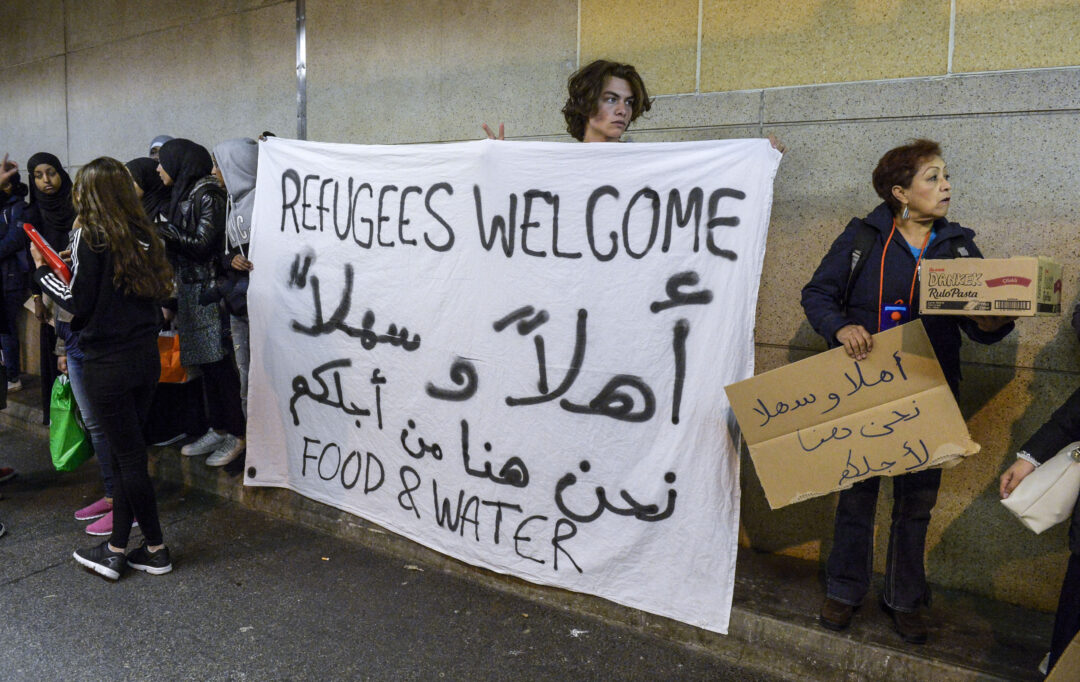 REFUGEES WELCOME
أهلاً و سهلاً
نحن هنا من أجلكم
FOOD & WATER
DANKEK
Rulo Pasta
أهلا و سهلا
نحن هنا
لأجلكم